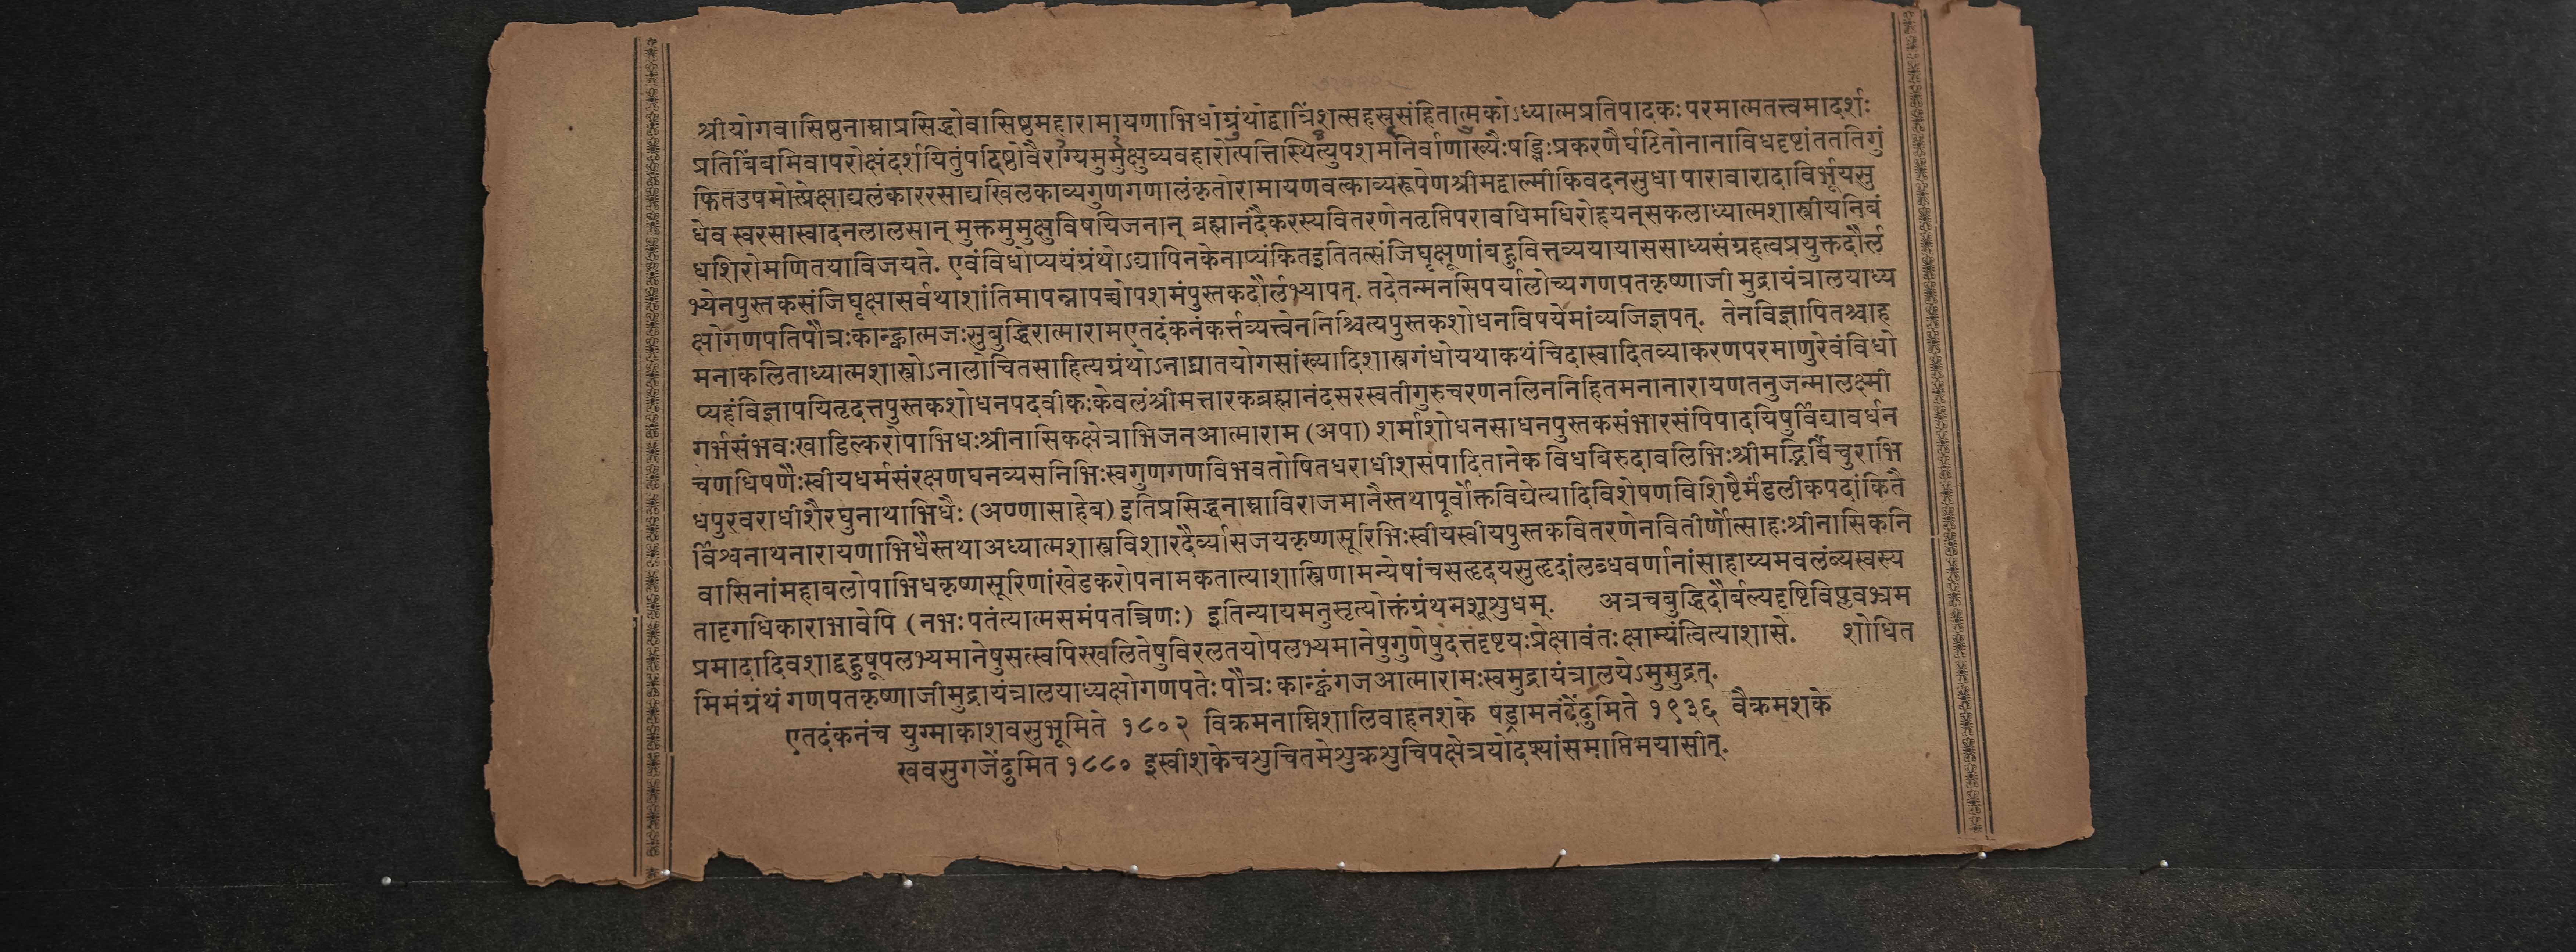 श्रीयोगवासिष्ठनाम्नाप्रसिद्धोवासिष्ठमहारामायणाभिधोग्रंथोद्वात्रिंशत्सहस्रसंहितात्मकोऽध्यात्मप्रतिपादकः परमात्मतत्त्वमादर्शः
प्रतिबिंबमिवापरोक्षंदर्शयितुंपटिष्ठोवैराग्यमुमुक्षुव्यवहारोत्पत्तिस्थित्युपशमनिर्वाणाख्यैःषड्भिःप्रकरणैर्घटितोनानाविधदृष्टांततितगुं
फितउपमोत्प्रेक्षाद्यलंकाररसाद्यखिलकाव्यगुणगणालंकृतोरामायणवत्काव्यरूपेणश्रीमद्वाल्मीकिवदनसुधा पारावारादाविर्भूयसु
धेव स्वरसास्वादनलालसान् मुक्तमुमुक्षुविषयिजनान् ब्रह्मानंदैकरस्यवितरणेनतृप्तिपरावधिमधिरोहयन्सकलाध्यात्मशास्त्रीयनिबं
धशिरोमणितयाविजयते. एवंविधोप्ययंग्रंथोऽद्यापिनकेनाप्यंकितइतितत्संजिघृक्षूणांबहुवित्तव्ययायाससाध्यसंग्रहत्वप्रयुक्तदौर्ल
भ्येनपुस्तकसंजिघृक्षासर्वथाशांतिमापन्नापच्चोपशमंपुस्तकदौर्लभ्यापत्. तदेतन्मनसिपर्यालोच्यगणपतकृष्णाजी मुद्रायंत्रालयाध्य
क्षोगणपतिपौत्रःकान्ह्वात्मजःसुबुद्धिरात्मारामएतदंकनंकर्त्तव्यत्त्वेननिश्चित्यपुस्तकशोधनविषयेमांव्यजिज्ञपत्. तेनविज्ञापितश्चाह
मनाकलिताध्यात्मशास्त्रोऽनालोचितसाहित्यग्रंथोऽनाघ्रातयोगसांख्यादिशास्त्रगंधोयथाकथंचिदास्वादितव्याकरणपरमाणुरेवंविधो
प्यहंविज्ञापयितृदत्तपुस्तकशोधनपदवीकःकेवलंश्रीमत्तारकब्रह्मानंदसरस्वतीगुरुचरणनलिननिहितमनानारायणतनुजन्मालक्ष्मी
गर्भसंभवःखाडिल्करोपाभिधःश्रीनासिकक्षेत्राभिजनआत्माराम (अपा) शर्माशोधनसाधनपुस्तकसंभारसंपिपादयिषुर्विद्यावर्धन
चणधिषणैःस्वीयधर्मसंरक्षणघनव्यसनिभिःस्वगुणगणविभवतोषितधराधीशसंपादितानेक विधबिरुदावलिभिःश्रीमद्भिर्विंचुराभि
धपुरवराधीशैरघुनाथाभिधैः (अण्णासाहेब) इतिप्रसिद्धनाम्नाविराजमानैस्तथापूर्वोक्तविद्येत्यादिविशेषणविशिष्टैर्मंडलीकपदांकितै
र्विश्वनाथनारायणाभिधैस्तथाअध्यात्मशास्त्रविशारदैर्व्यासजयकृष्णसूरिभिःस्वीयस्वीयपुस्तकवितरणेनवितीर्णोत्साहःश्रीनासिकनि
वासिनांमहाबलोपाभिधकृष्णसूरिणांखेडकरोपनामकतात्याशास्त्रिणामन्येषांचसत्हृदयसुत्हृदांलब्धवर्णानांसाहाय्यमवलंब्यस्वस्य
तादृगधिकाराभावेपि (नभःपतंत्यात्मसमंपतत्त्रिणः) इतिन्यायमनुसृत्योक्तंग्रंथमशूशुधम्. अत्रचबुद्धिदौर्बल्यदृष्टिविप्लवभ्रम
प्रमादादिवशाद्बहुषूपलभ्यमानेषुसत्स्वपिस्खलितेषुविरलतयोपलभ्यमानेषुगुणेषुदत्तदृष्टयःप्रेक्षावंतःक्षाम्यंत्वित्याशासे. शोधित
मिमंग्रंथं गणपतकृष्णाजीमुद्रायंत्रालयाध्यक्षोगणपतेःपौत्रःकान्ह्वंगजआत्मारामःस्वमुद्रायंत्रालयेऽमुमुद्रत्.
एतदंकनंच युग्माकाशवसुभूमिते १८०२ विक्रमनाम्निशालिवाहनशके षड्रामनंदेंदुमिते १९३६ वैक्रमशके
खवसुगजेंदुमित १८८० इस्वीशकेचशुचितमेशुक्रशुचिपक्षेत्रयोदश्यांसमाप्तिमयासीत्.